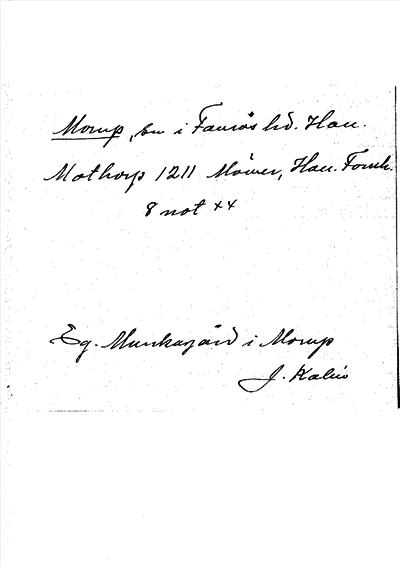 Morup, sn i Faurås hd. Hall.
Mothorp 1211 Möwer, Hall. Fornh.
8 not **
Eg. Munkagård i Morup
J. Kalén